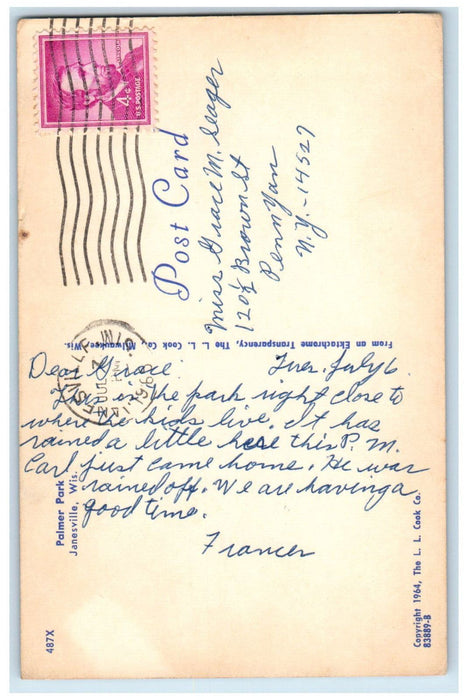 4¢
U.S. POSTAGE
Post Card
Miss Grace M. Seager
120½ Brown St
Penn Yan
N.Y. - 14527
From an Ektachrome Transparency, The L. L. Cook Co. Milwaukee, Wis.
Dear Grace: Tues. July 6.
This is the park right close to
where the kids live. It has
rained a little here this P. M.
Carl just came home. He was
rained off. We are having a
good time.
Frances
Palmer Park
Janesville, Wis.
487X
Copyright 1964, The L. L. Cook Co.
83889-B